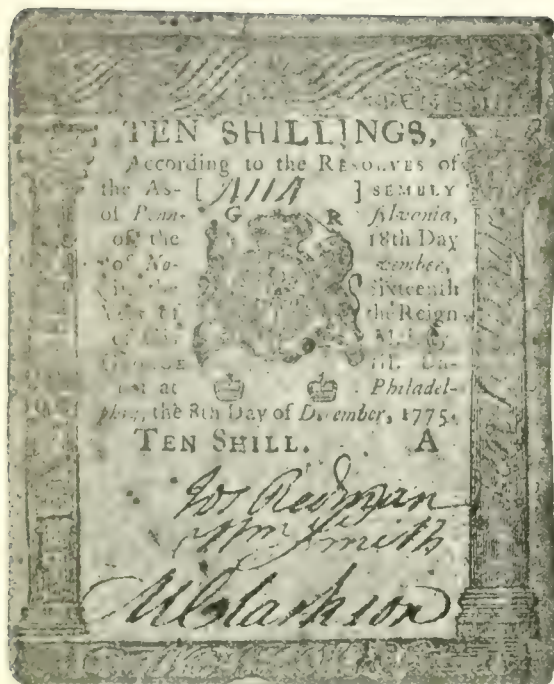 TEN SHILLINGS,
According to the RESOLVES of
the As- [ ] SEMBLY
of Penn- G R sylvania,
of the 18th Day
of No- vember,
in the Sixteenth
Year of the Reign
of His Majesty
GEORGE III. Da-
ted at Philadel-
phia, the 8th Day of December, 1775.
TEN SHILL. A
Jos Redman
Wm Smith
M Clarkson